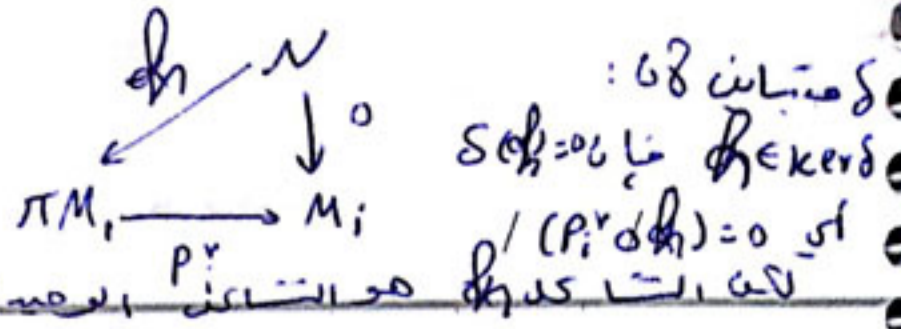 N
0
πM_i
M_i
P_i
δ متباين لأن :
h ∈ kerδ فإن δ(h)=0
أي (P_i o h)=0
لكن التشاكل h هو التشاكل الوحيد